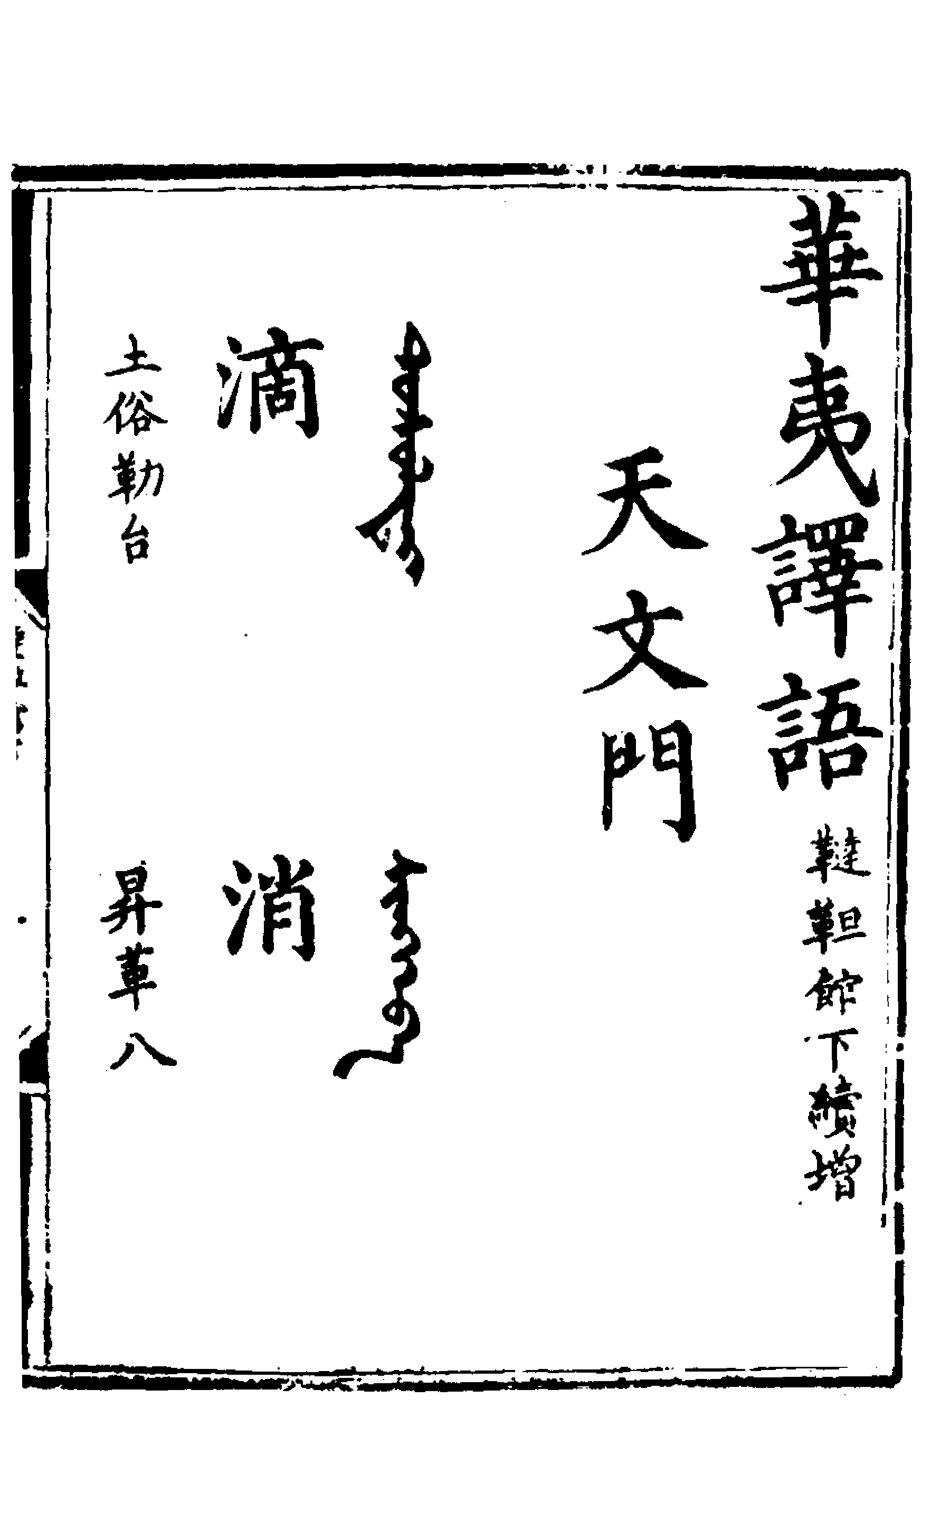 華夷譯語 韃靼館下續增
天文門
滴
土俗勒台
消
昇革八